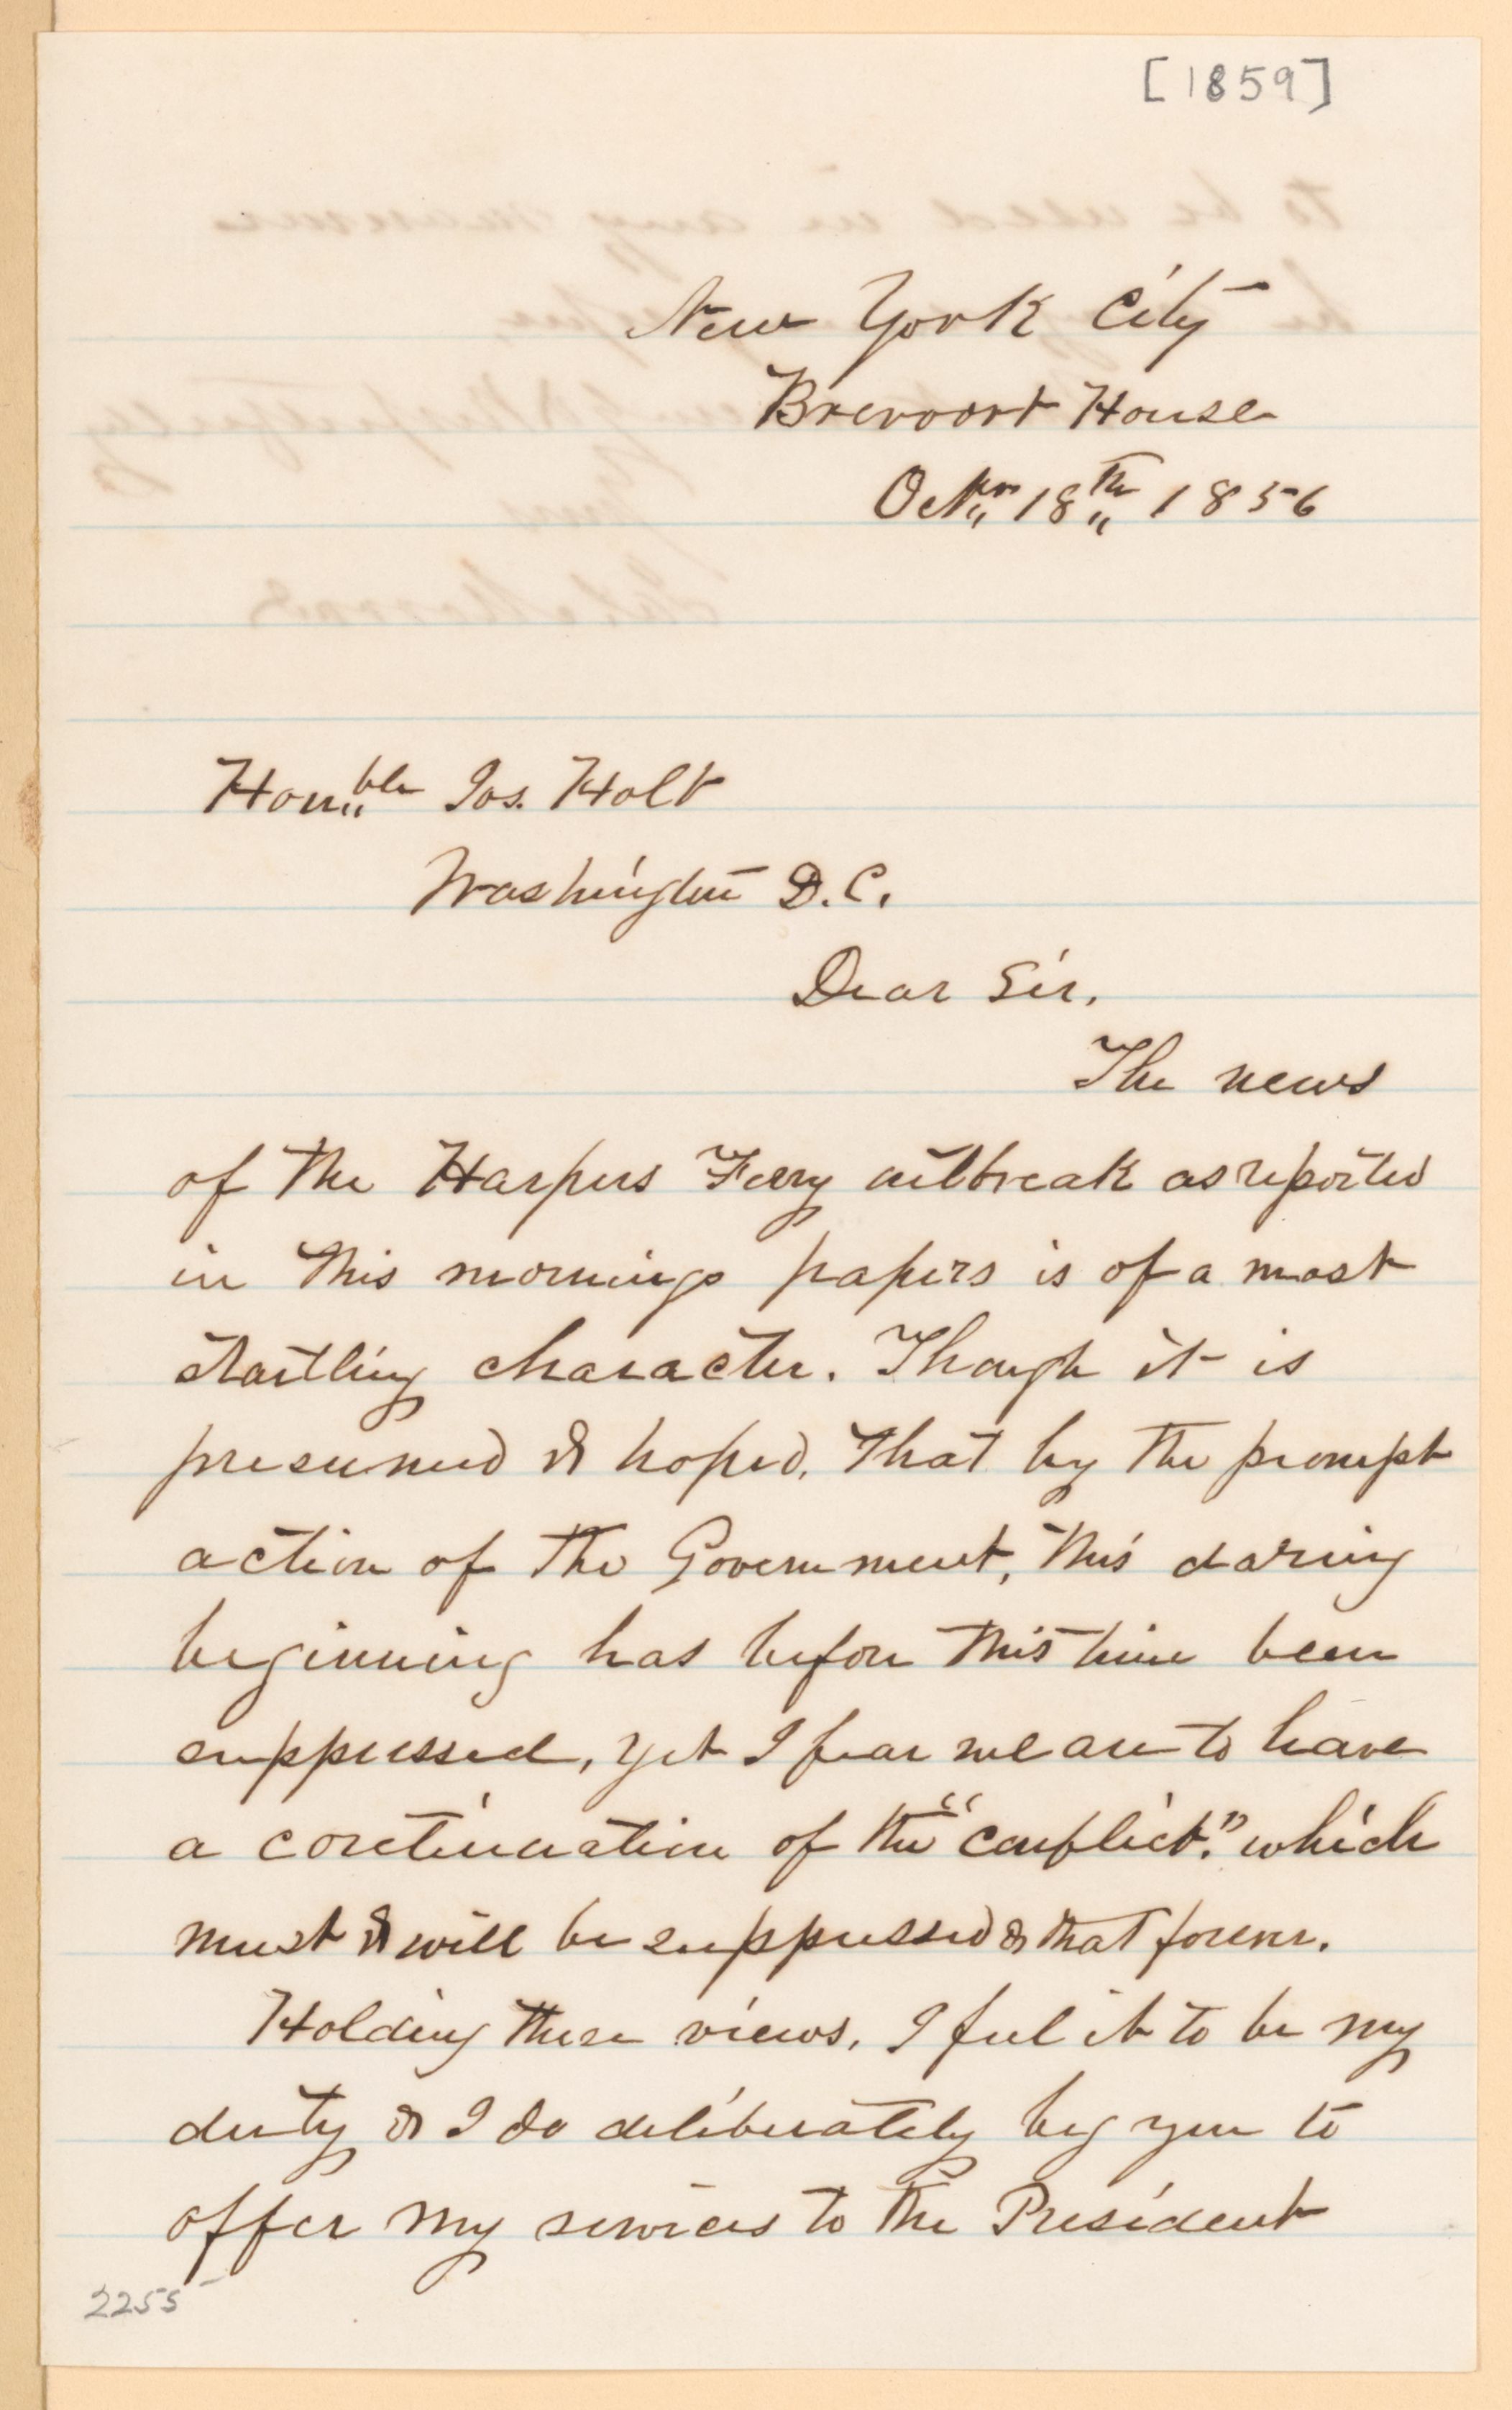 [1859]
New York City
Brevoort House
Oct.br 18th 1856
Hon.ble Jos. Holt
Washington D.C.
Dear Sir,
The news
of the Harpers Ferry outbreak as reported
in this mornings papers is of a most
startling character. Though it is
presumed & hoped, that by the prompt
action of the Government, this daring
beginning has before this time been
suppressed, yet I fear we are to have
a continuation of the "conflict." which
must & will be suppressed & that forever.
Holding these views, I feel it to be my
duty & I do deliberately beg you to
offer my services to the President
2255